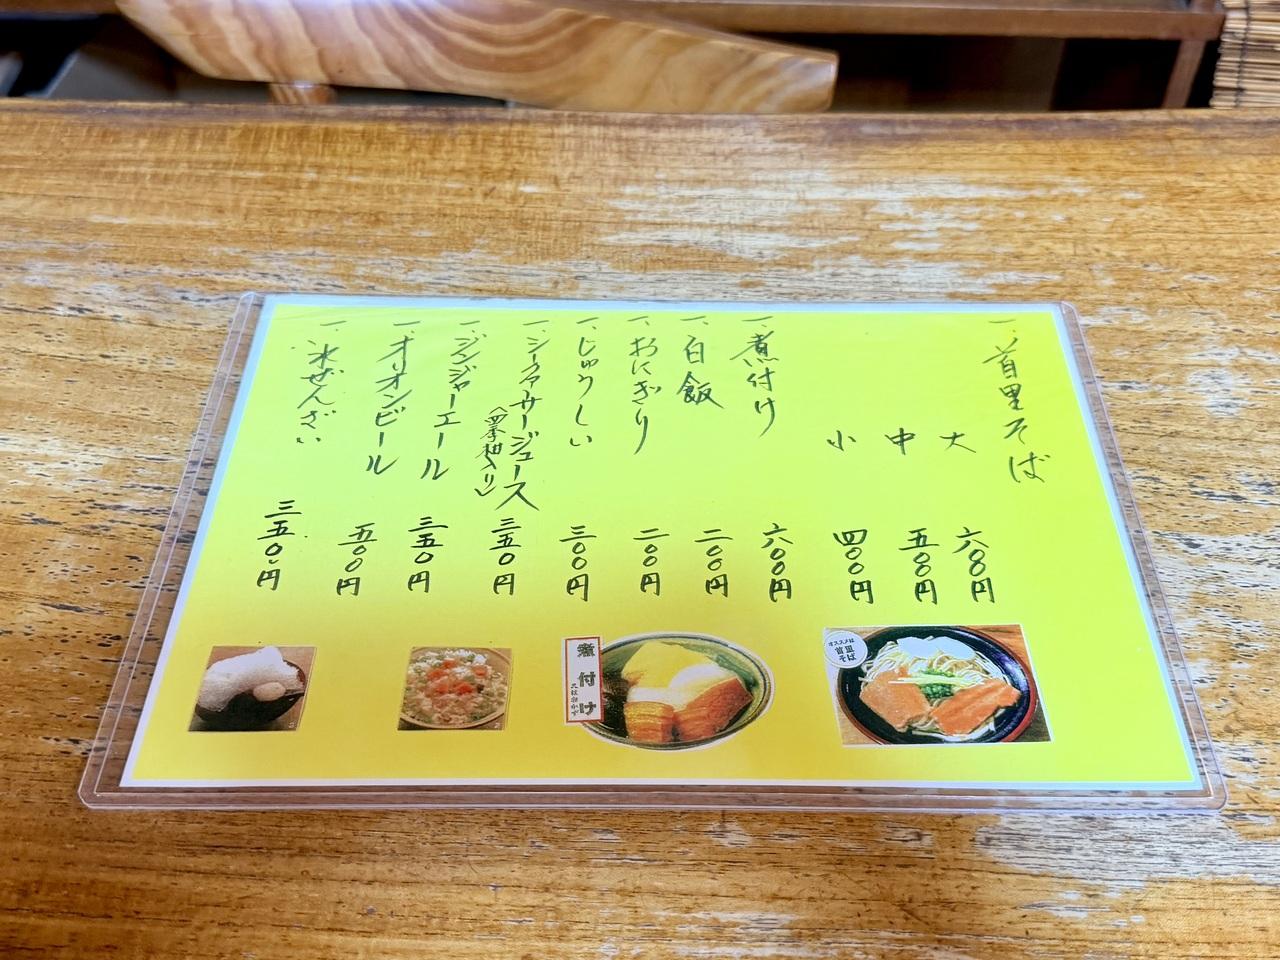 一、首里そば
大 六〇〇円
中 五〇〇円
小 四〇〇円
一、煮付け 六〇〇円
一、白飯 二〇〇円
一、おにぎり 二〇〇円
一、じゅうしい 三〇〇円
一、シークァーサージュース 三五〇円
(四季柑入り)
一、ジンジャーエール 三五〇円
一、オリオンビール 五〇〇円
一、氷ぜんざい 三五〇円
オススメは
首里
そば
煮付け